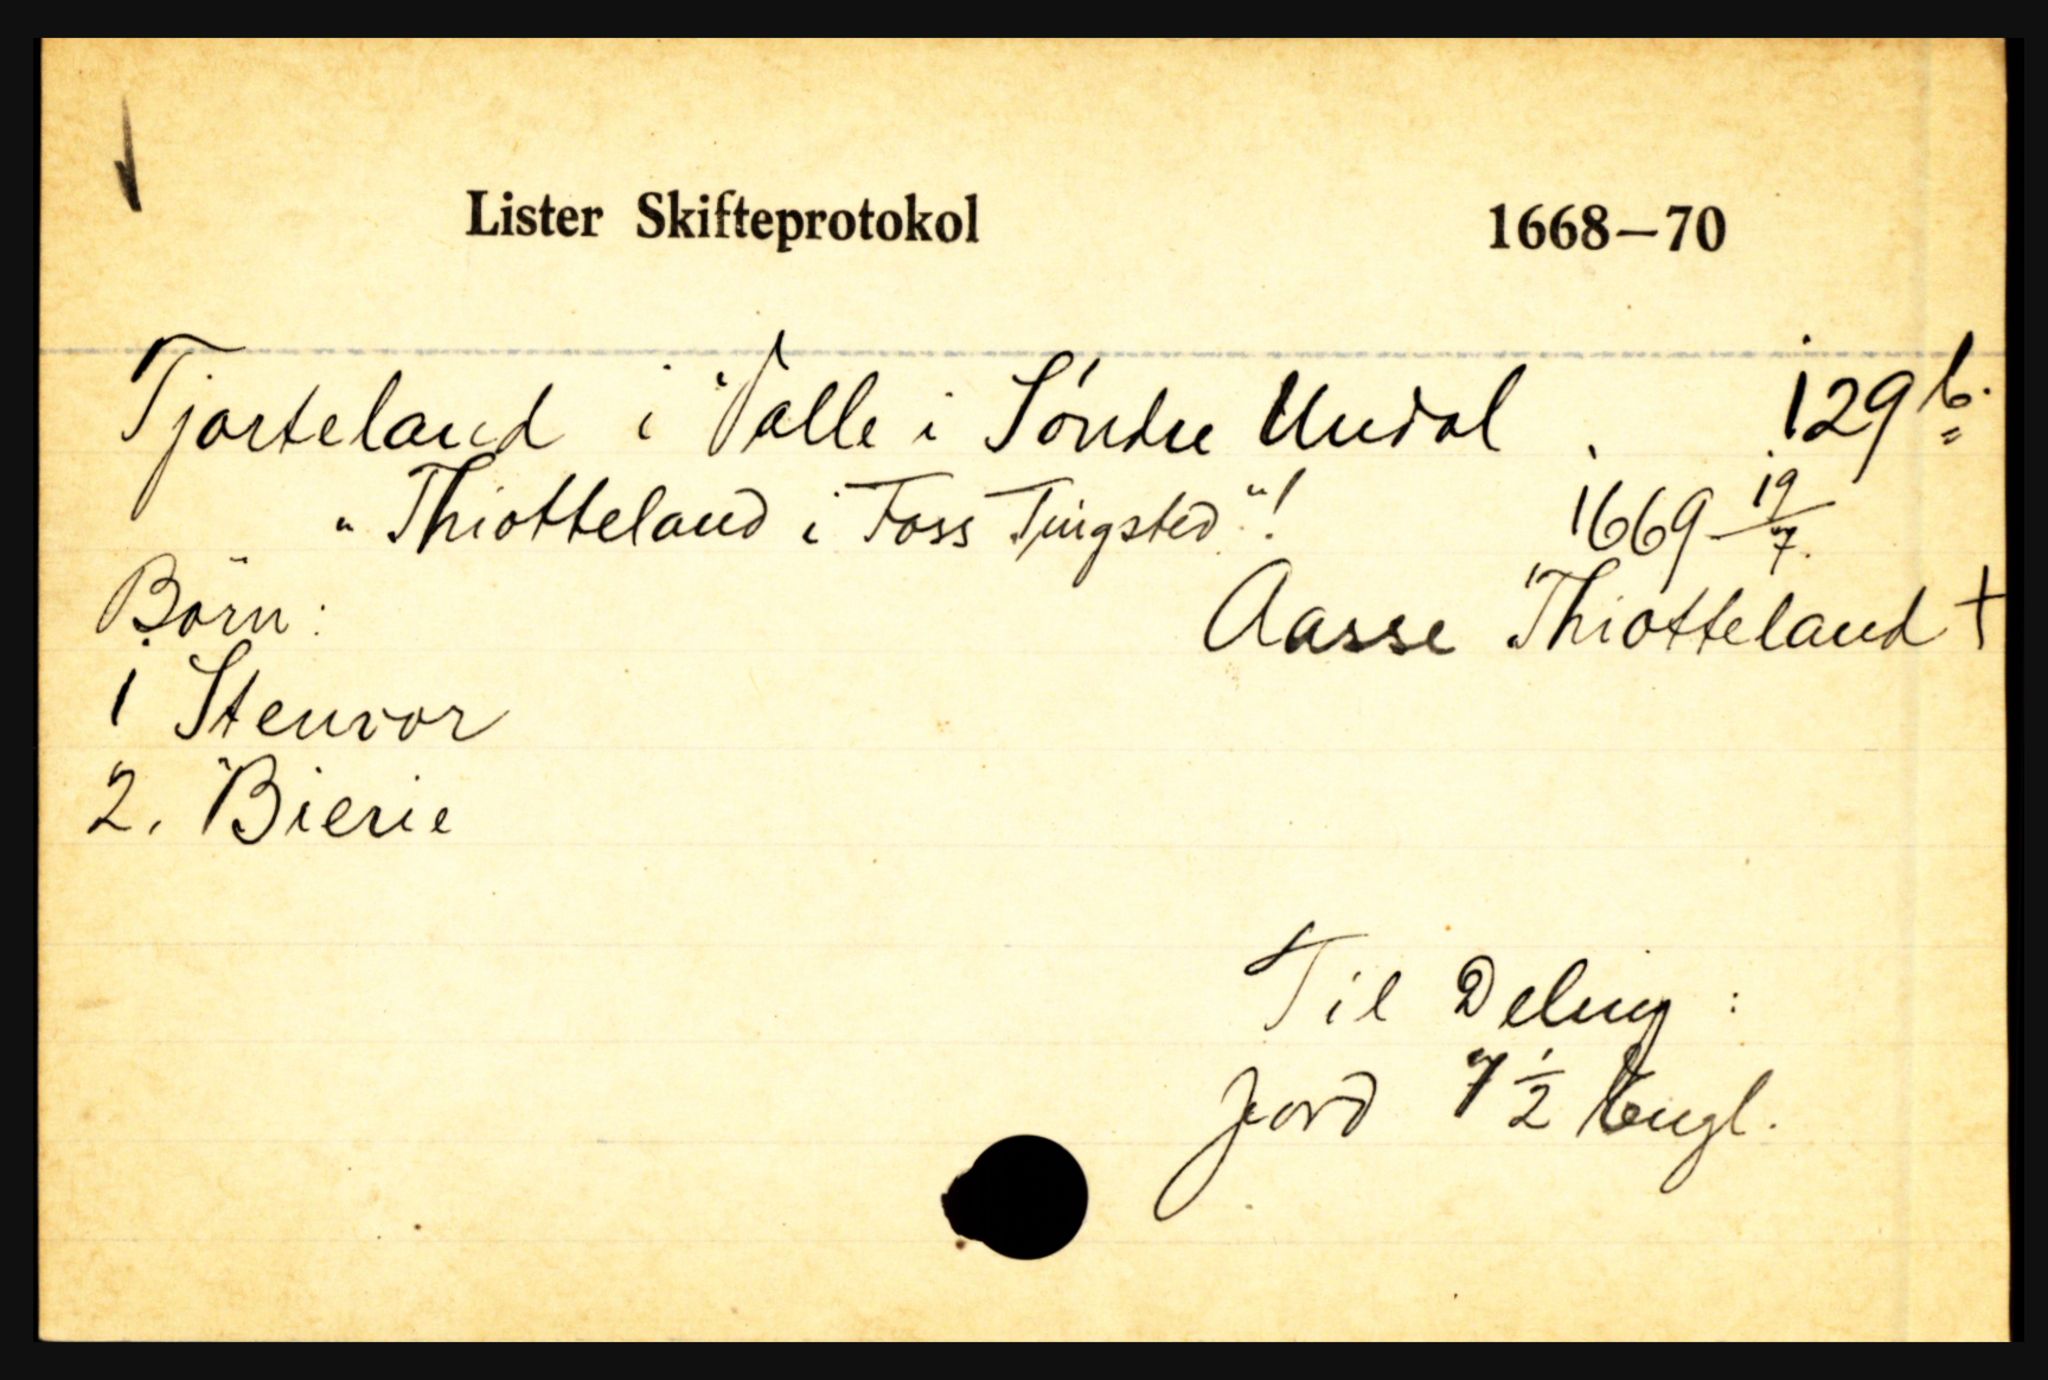 Lister Skifteprotokol 1668—70
Tjorteland i Valle i Söndre Undal . 129 b.
"Thiotteland i Foss Tingsted"! 1669 19/7.
Börn: Aasse Thiotteland †
1 Stenvor
2. Bierie
Til Deling :
Jord 7 1/2 Engl.